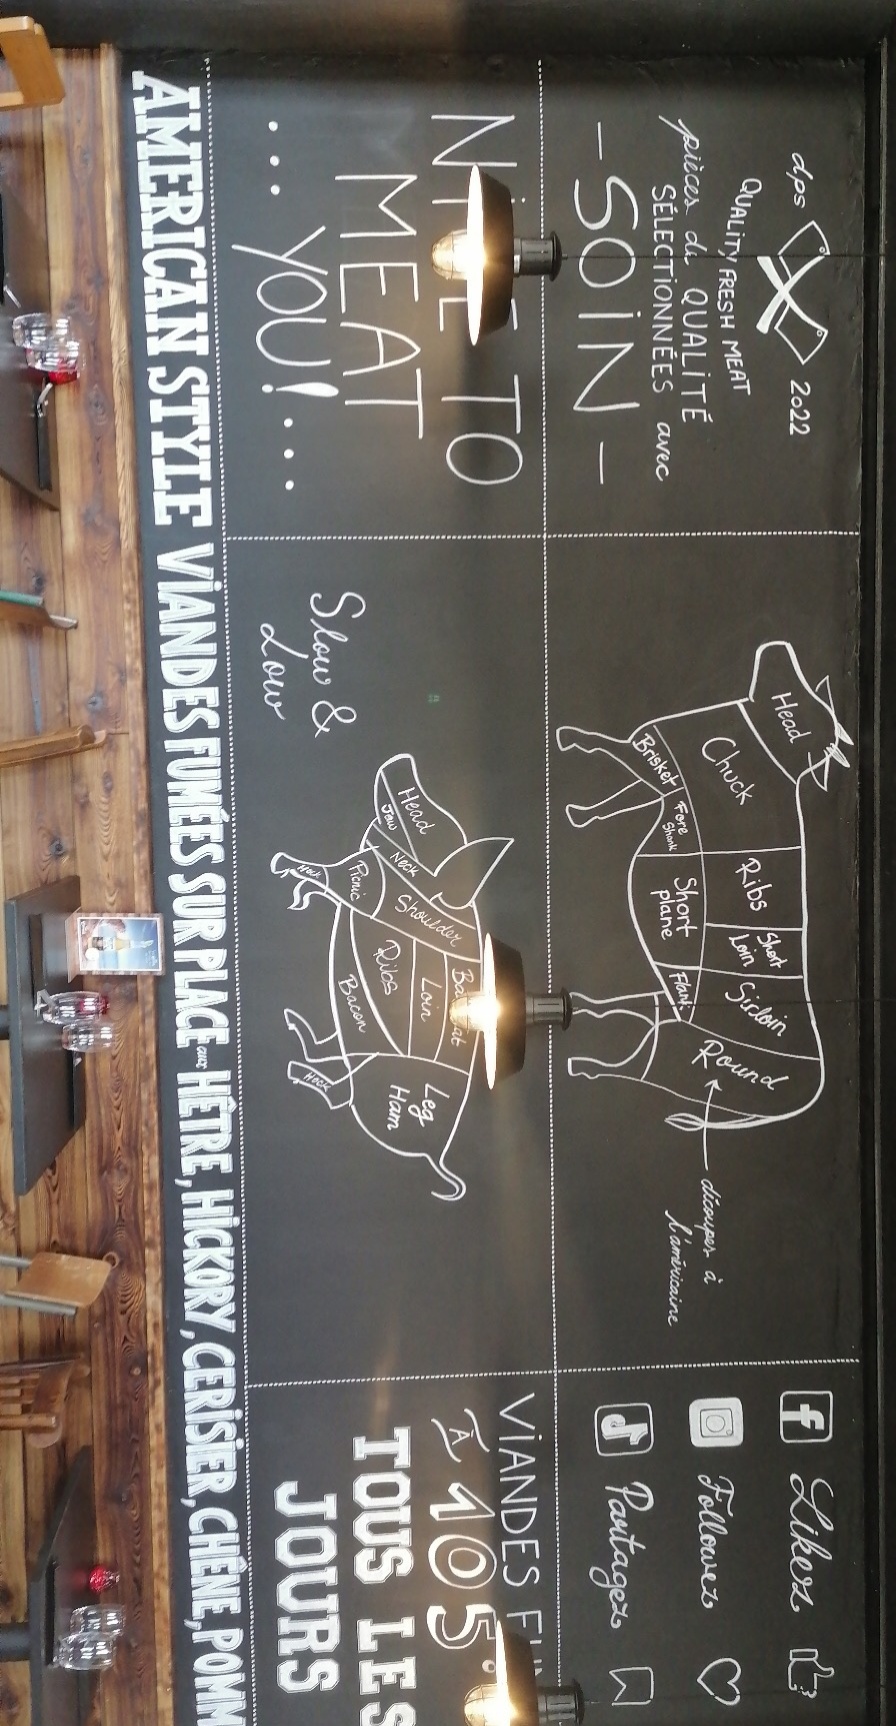 dps 2022
QUALITY FRESH MEAT
pièces de QUALITÉ
SÉLECTIONNÉES avec
- SOIN -
TO
MEAT
... YOU! ...
Head
Chuck
Brisket
Fore
Shank
Ribs
Short
plane
Short
Loin
Flank
Sirloin
Round
découpes à
l'américaine
Slow &
Low
Head
Jow
Neck
Shoulder
Picnic
Hock
Ribs
Loin
Bacon
Leg
Ham
Hock
Likez
Followez
Partagez
VIANDES
À 105°
TOUS LES
JOURS
AMERICAN STYLE VIANDES FUMÉES SUR PLACE aux HÊTRE, HICKORY, CERISIER, CHÊNE, POMM